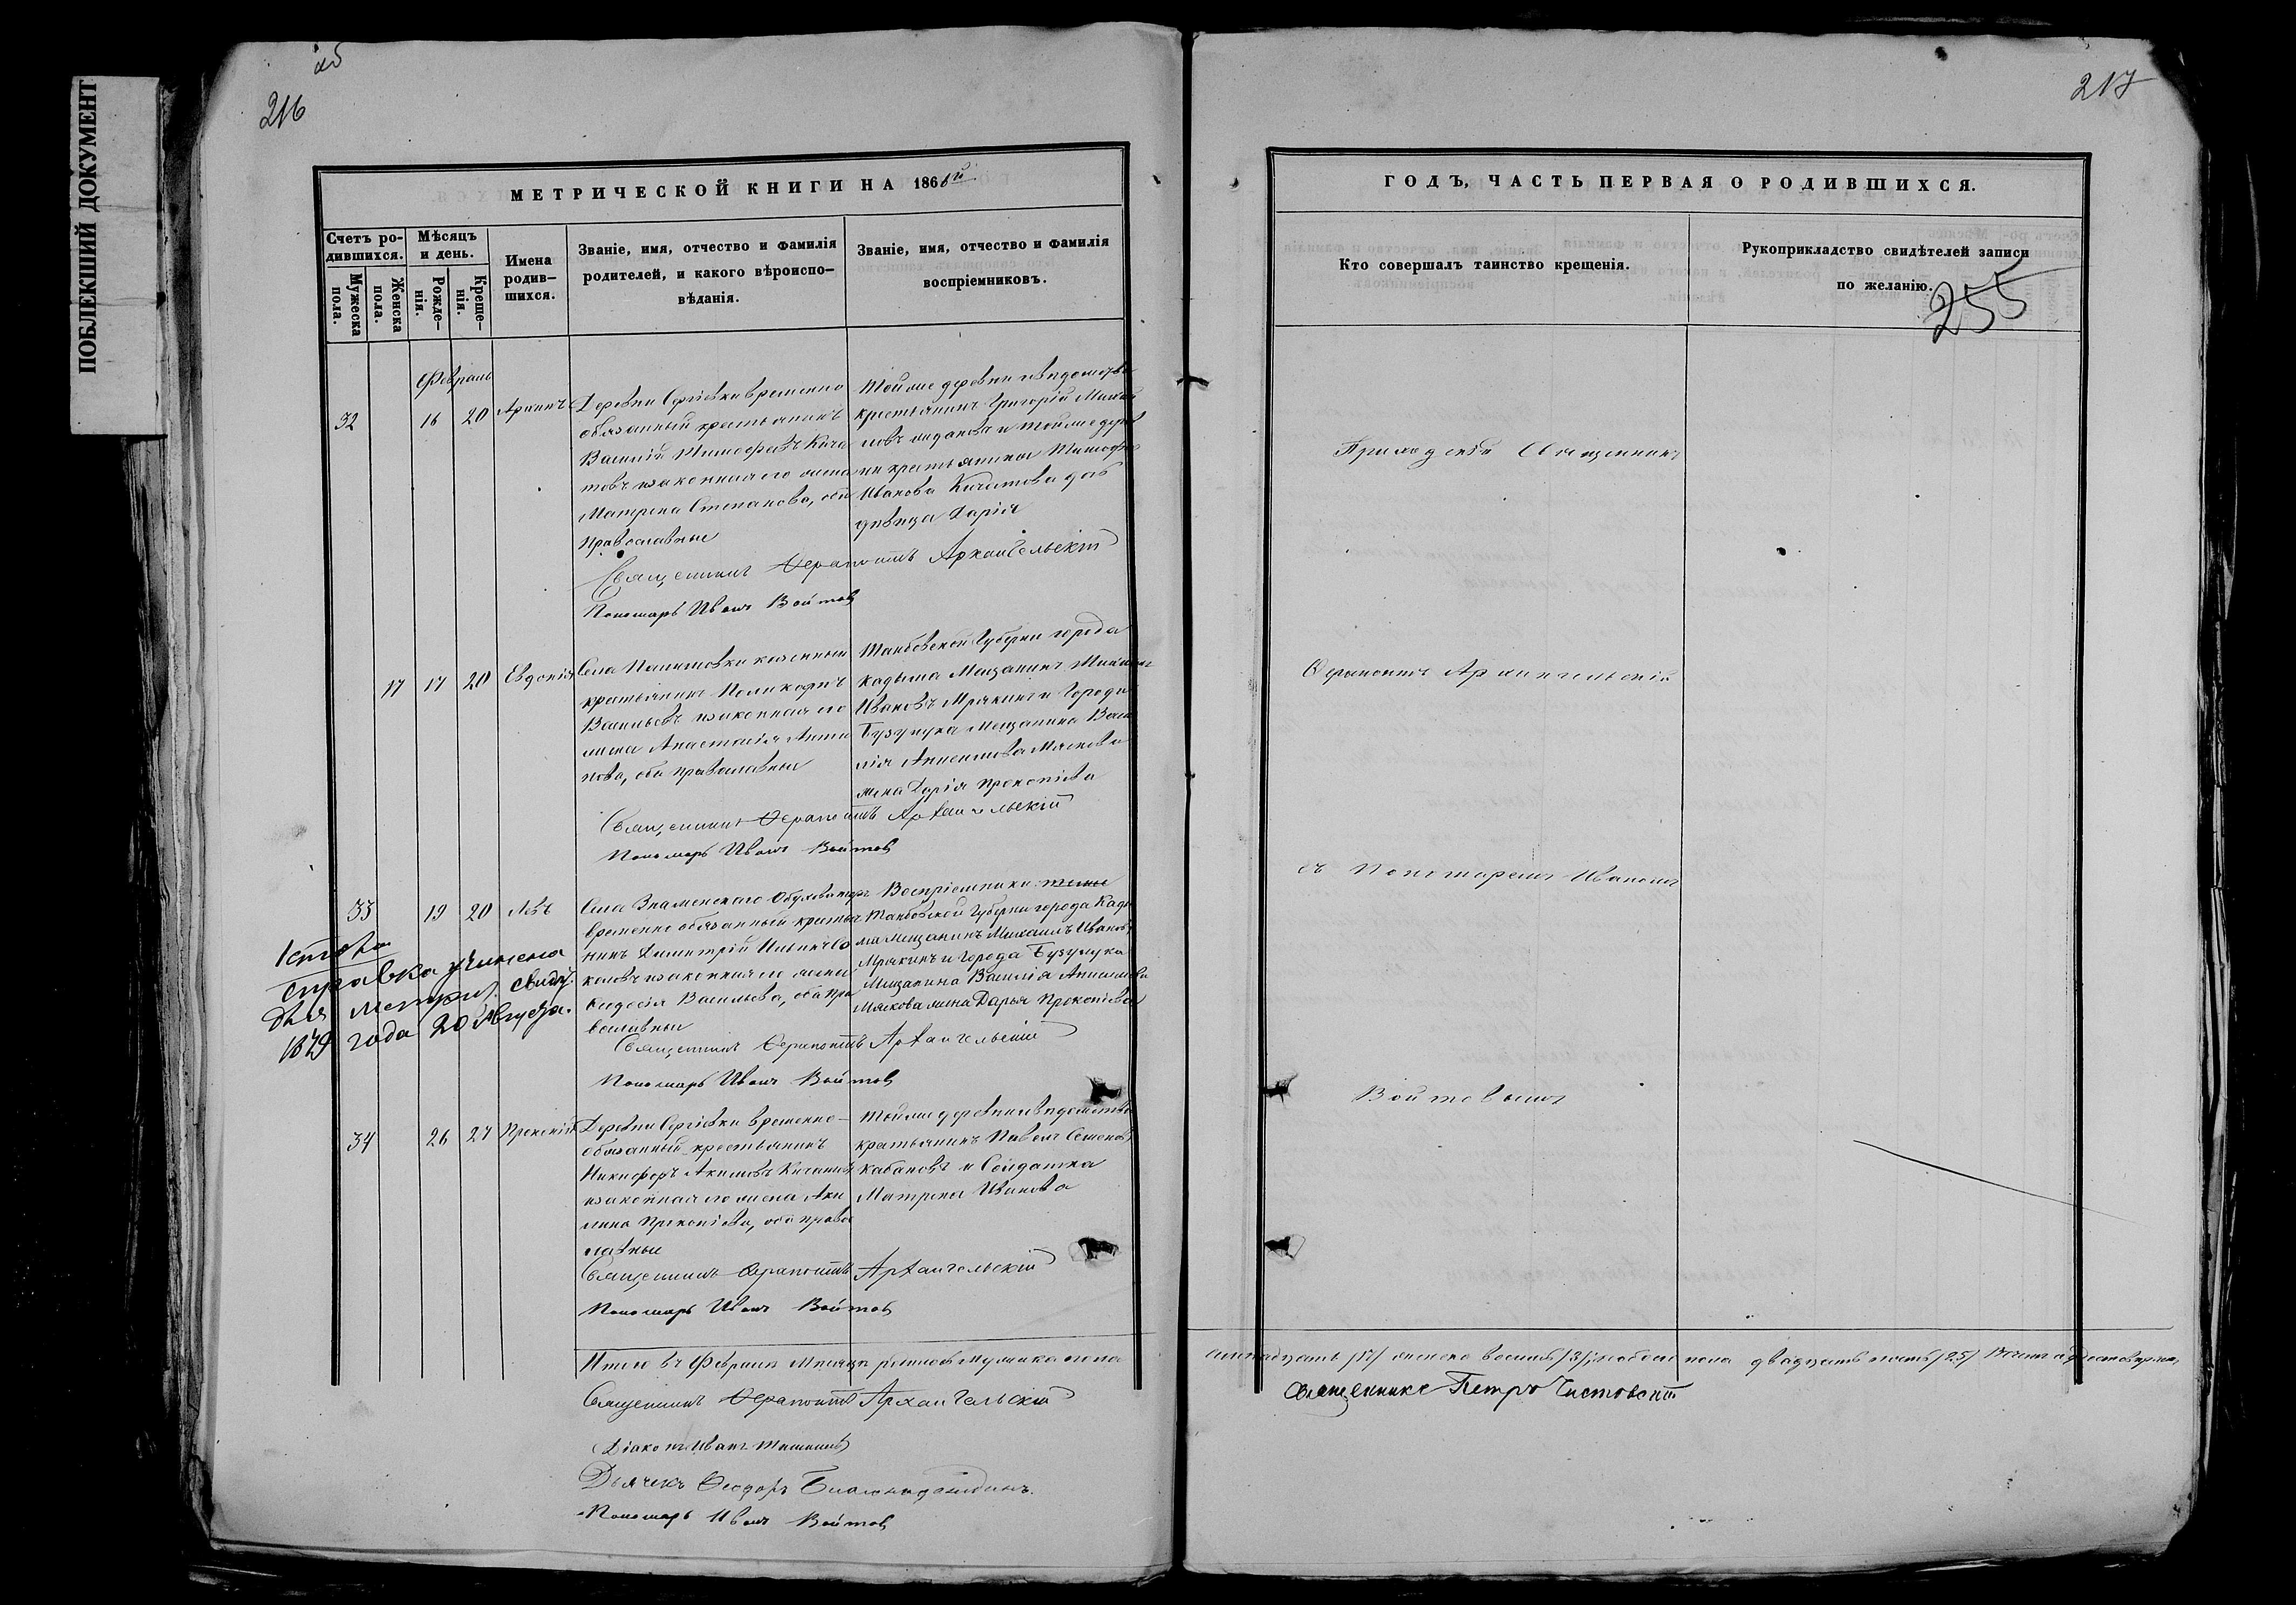 ПОБЛЕКШИЙ ДОКУМЕНТ
216
МЕТРИЧЕСКОЙ КНИГИ НА 1866й
Счетъ ро-
дившихся.
Мужеска
пола.
Женска
пола.
Мѣсяцъ
и день.
Рожде-
нія.
Креще-
нія.
Имена
родив-
шихся.
Званіе, имя, отчество и фамилія
родителей, и какого вѣроиспо-
вѣданія.
Званіе, имя, отчество и фамилія
воспріемниковъ.
Февраль
32 16 20
Деревни Сергіевки временно
обязанный крестьянинъ
Василій Тимофеевъ Кича
товъ и законная его жена
Матрена Степанова, оба
православные
Тойже деревни и вѣдомства
крестьянинъ Григорій
и тойже дерев
ни крестьянина Тимофея
Иванова Кичатова дочь
дѣвица Дарія
Священникъ Ѳерапонтъ Архангельскій
Пономарь Иванъ Войтовъ
17 17 20 Евдокія
Села казенный
крестьянинъ Поликарпъ
Васильевъ и законная его
жена Анастасія Анти
пова, оба православные
Тамбовской Губерніи города
Кадыма Мещанинъ Михаилъ
Ивановъ Мрякинъ и Города
Бузулука Мещанина Васи
лія Анисимова Маскова
жена Дарія Прокопіева
Священникъ Ѳерапонтъ Архангельскій
Пономарь Иванъ Войтовъ
33 19 20 Левъ
Села Знаменскаго
временно обязанный крестья
нинъ Димитрій Ильинъ Со
коловъ и законная его жена
Ѳеодосія Васильева, оба пра
вославные
Воспріемники
Тамбовской Губерніи города Кады
ма Мещанинъ Михаилъ Ивановъ
Мрякинъ и Города Бузулука
Мещанина Василія Анисимова
Маскова жена Дарья Прокопіева
Священникъ Ѳерапонтъ Архангельскій
Пономарь Иванъ Войтовъ
справка учинена
для метрич. свидѣ.
1879 года 20 Августа.
34 26 27 Прокопій
Деревни Сергіевки временно-
обязанный крестьянинъ
Никифоръ Акимовъ
и законная его жена Аки
лина Прокопіева, оба право
славные
Тойже деревни и вѣдомства
крестьянинъ Павелъ Семеновъ
Кабановъ и Солдатка
Матрена Иванова
Священникъ Ѳерапонтъ Архангельскій
Пономарь Иванъ Войтовъ
Итого въ Февралѣ Мѣсяцѣ мужеска пола
Священникъ Ѳерапонтъ Архангельскій
Діаконъ Иванъ
Дьячекъ Ѳеодоръ
Пономарь Иванъ Войтовъ
217
ГОДЪ, ЧАСТЬ ПЕРВАЯ О РОДИВШИХСЯ.
Кто совершалъ таинство крещенія.
Рукоприкладство свидѣтелей записи
по желанію.
255
Приходскій Священникъ
Ѳерапонтъ Архангельскій
съ Пономаремъ Иваномъ
Войтовымъ
семнадцать /17/ женска восемь /8/, обоего пола двадцать пять /25/
Священникъ Петръ Чистовскій